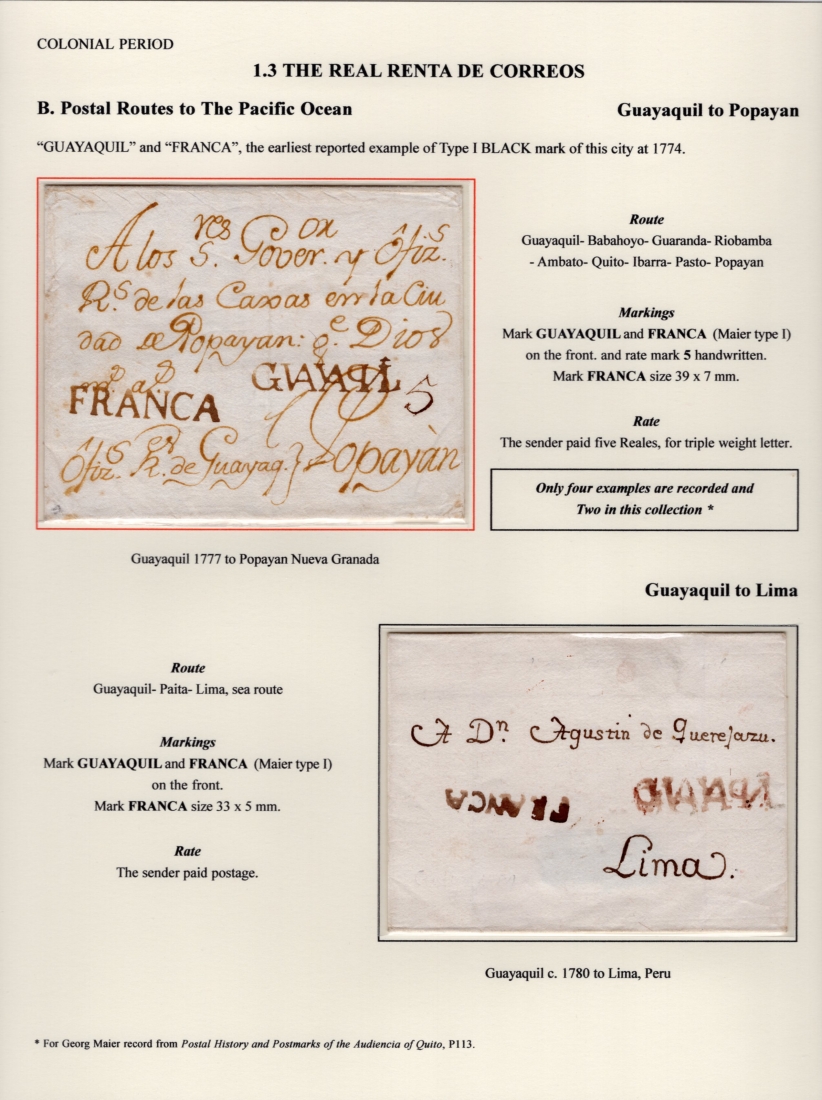 COLONIAL PERIOD
1.3 THE REAL RENTA DE CORREOS
B. Postal Routes to The Pacific Ocean
Guayaquil to Popayan
“GUAYAQUIL” and “FRANCA”, the earliest reported example of Type I BLACK mark of this city at 1774.
res or
A los S. Gover. y Ofiz.s
R.s de las Caxas en la Ciu
dad de Popayan: g.e Dios
m.s a.s
FRANCA
5
Ofiz.s R.es de Guayaq. } Popayàn
Route
Guayaquil- Babahoyo- Guaranda- Riobamba
- Ambato- Quito- Ibarra- Pasto- Popayan
Markings
Mark GUAYAQUIL and FRANCA (Maier type I)
on the front. and rate mark 5 handwritten.
Mark FRANCA size 39 x 7 mm.
Rate
The sender paid five Reales, for triple weight letter.
Only four examples are recorded and
Two in this collection *
Guayaquil 1777 to Popayan Nueva Granada
Guayaquil to Lima
Route
Guayaquil- Paita- Lima, sea route
Markings
Mark GUAYAQUIL and FRANCA (Maier type I)
on the front.
Mark FRANCA size 33 x 5 mm.
Rate
The sender paid postage.
A Dn Agustin de Querejazu.
FRANCA
Lima.
Guayaquil c. 1780 to Lima, Peru
* For Georg Maier record from Postal History and Postmarks of the Audiencia of Quito, P113.